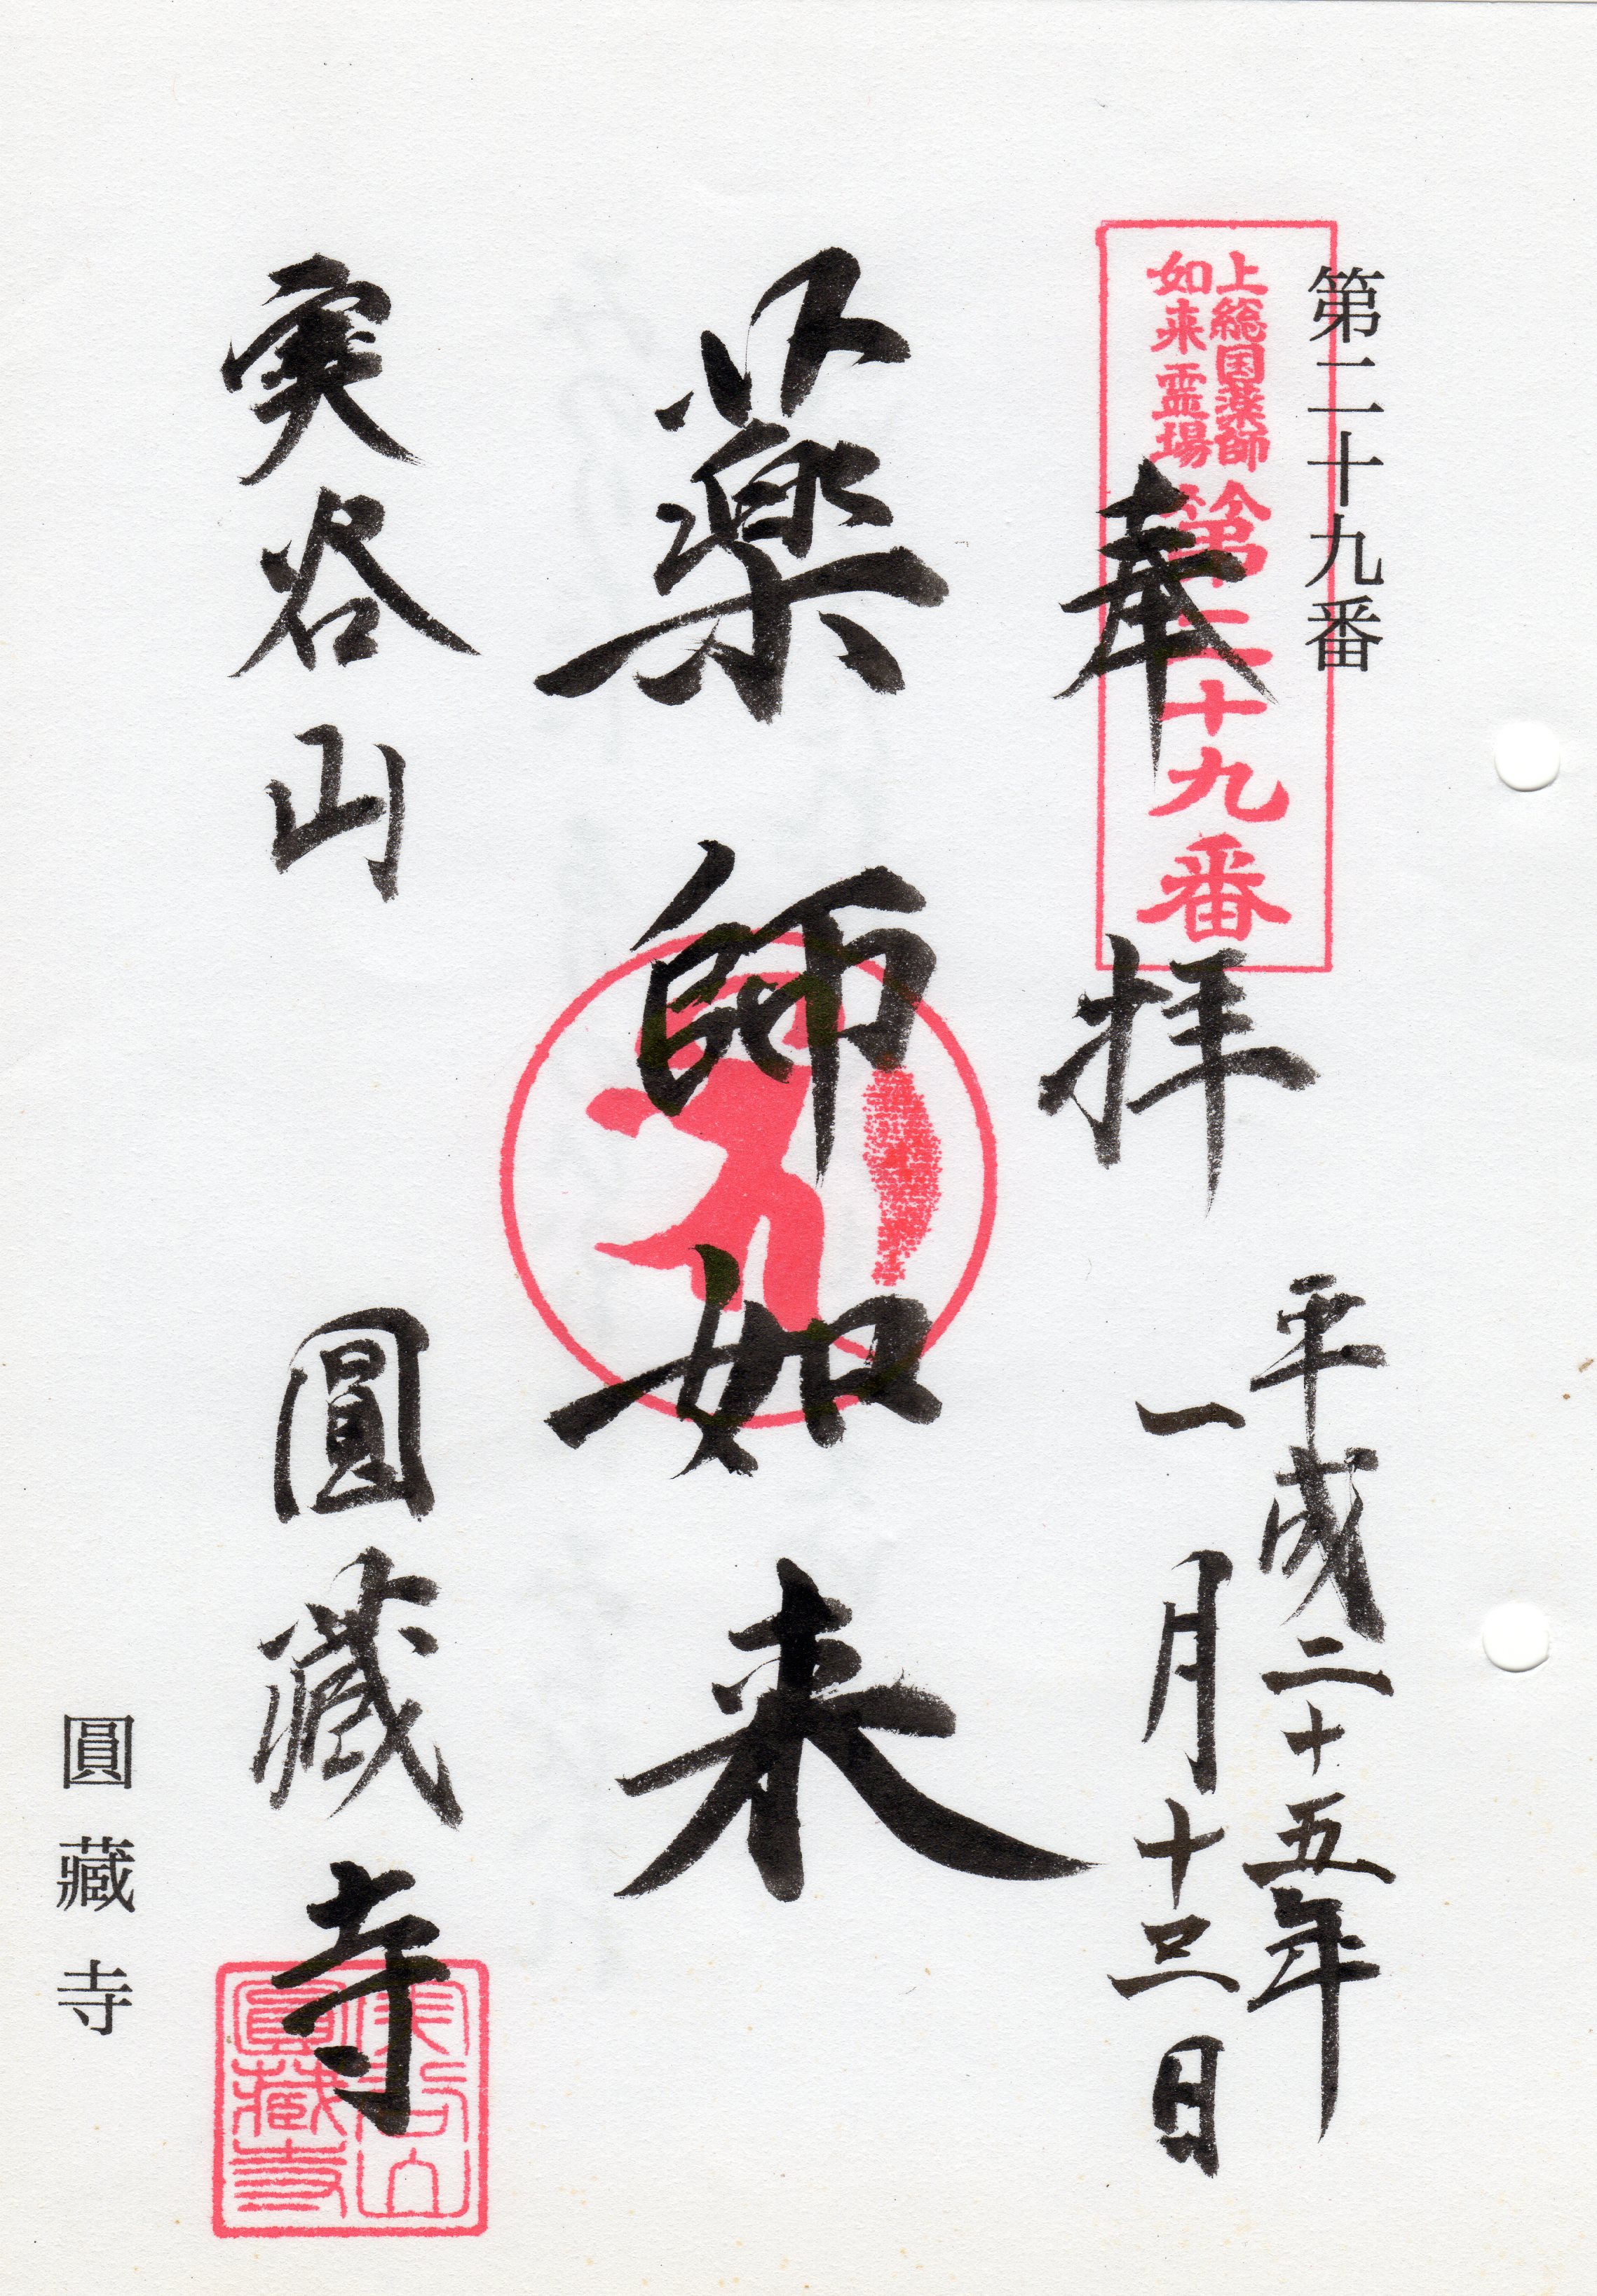 第二十九番
上総国薬師
如来霊場
第二十九番
奉拝
平成二十五年
一月十三日
薬師如来
実谷山
圓藏寺
実谷山
圓藏寺
圓藏寺